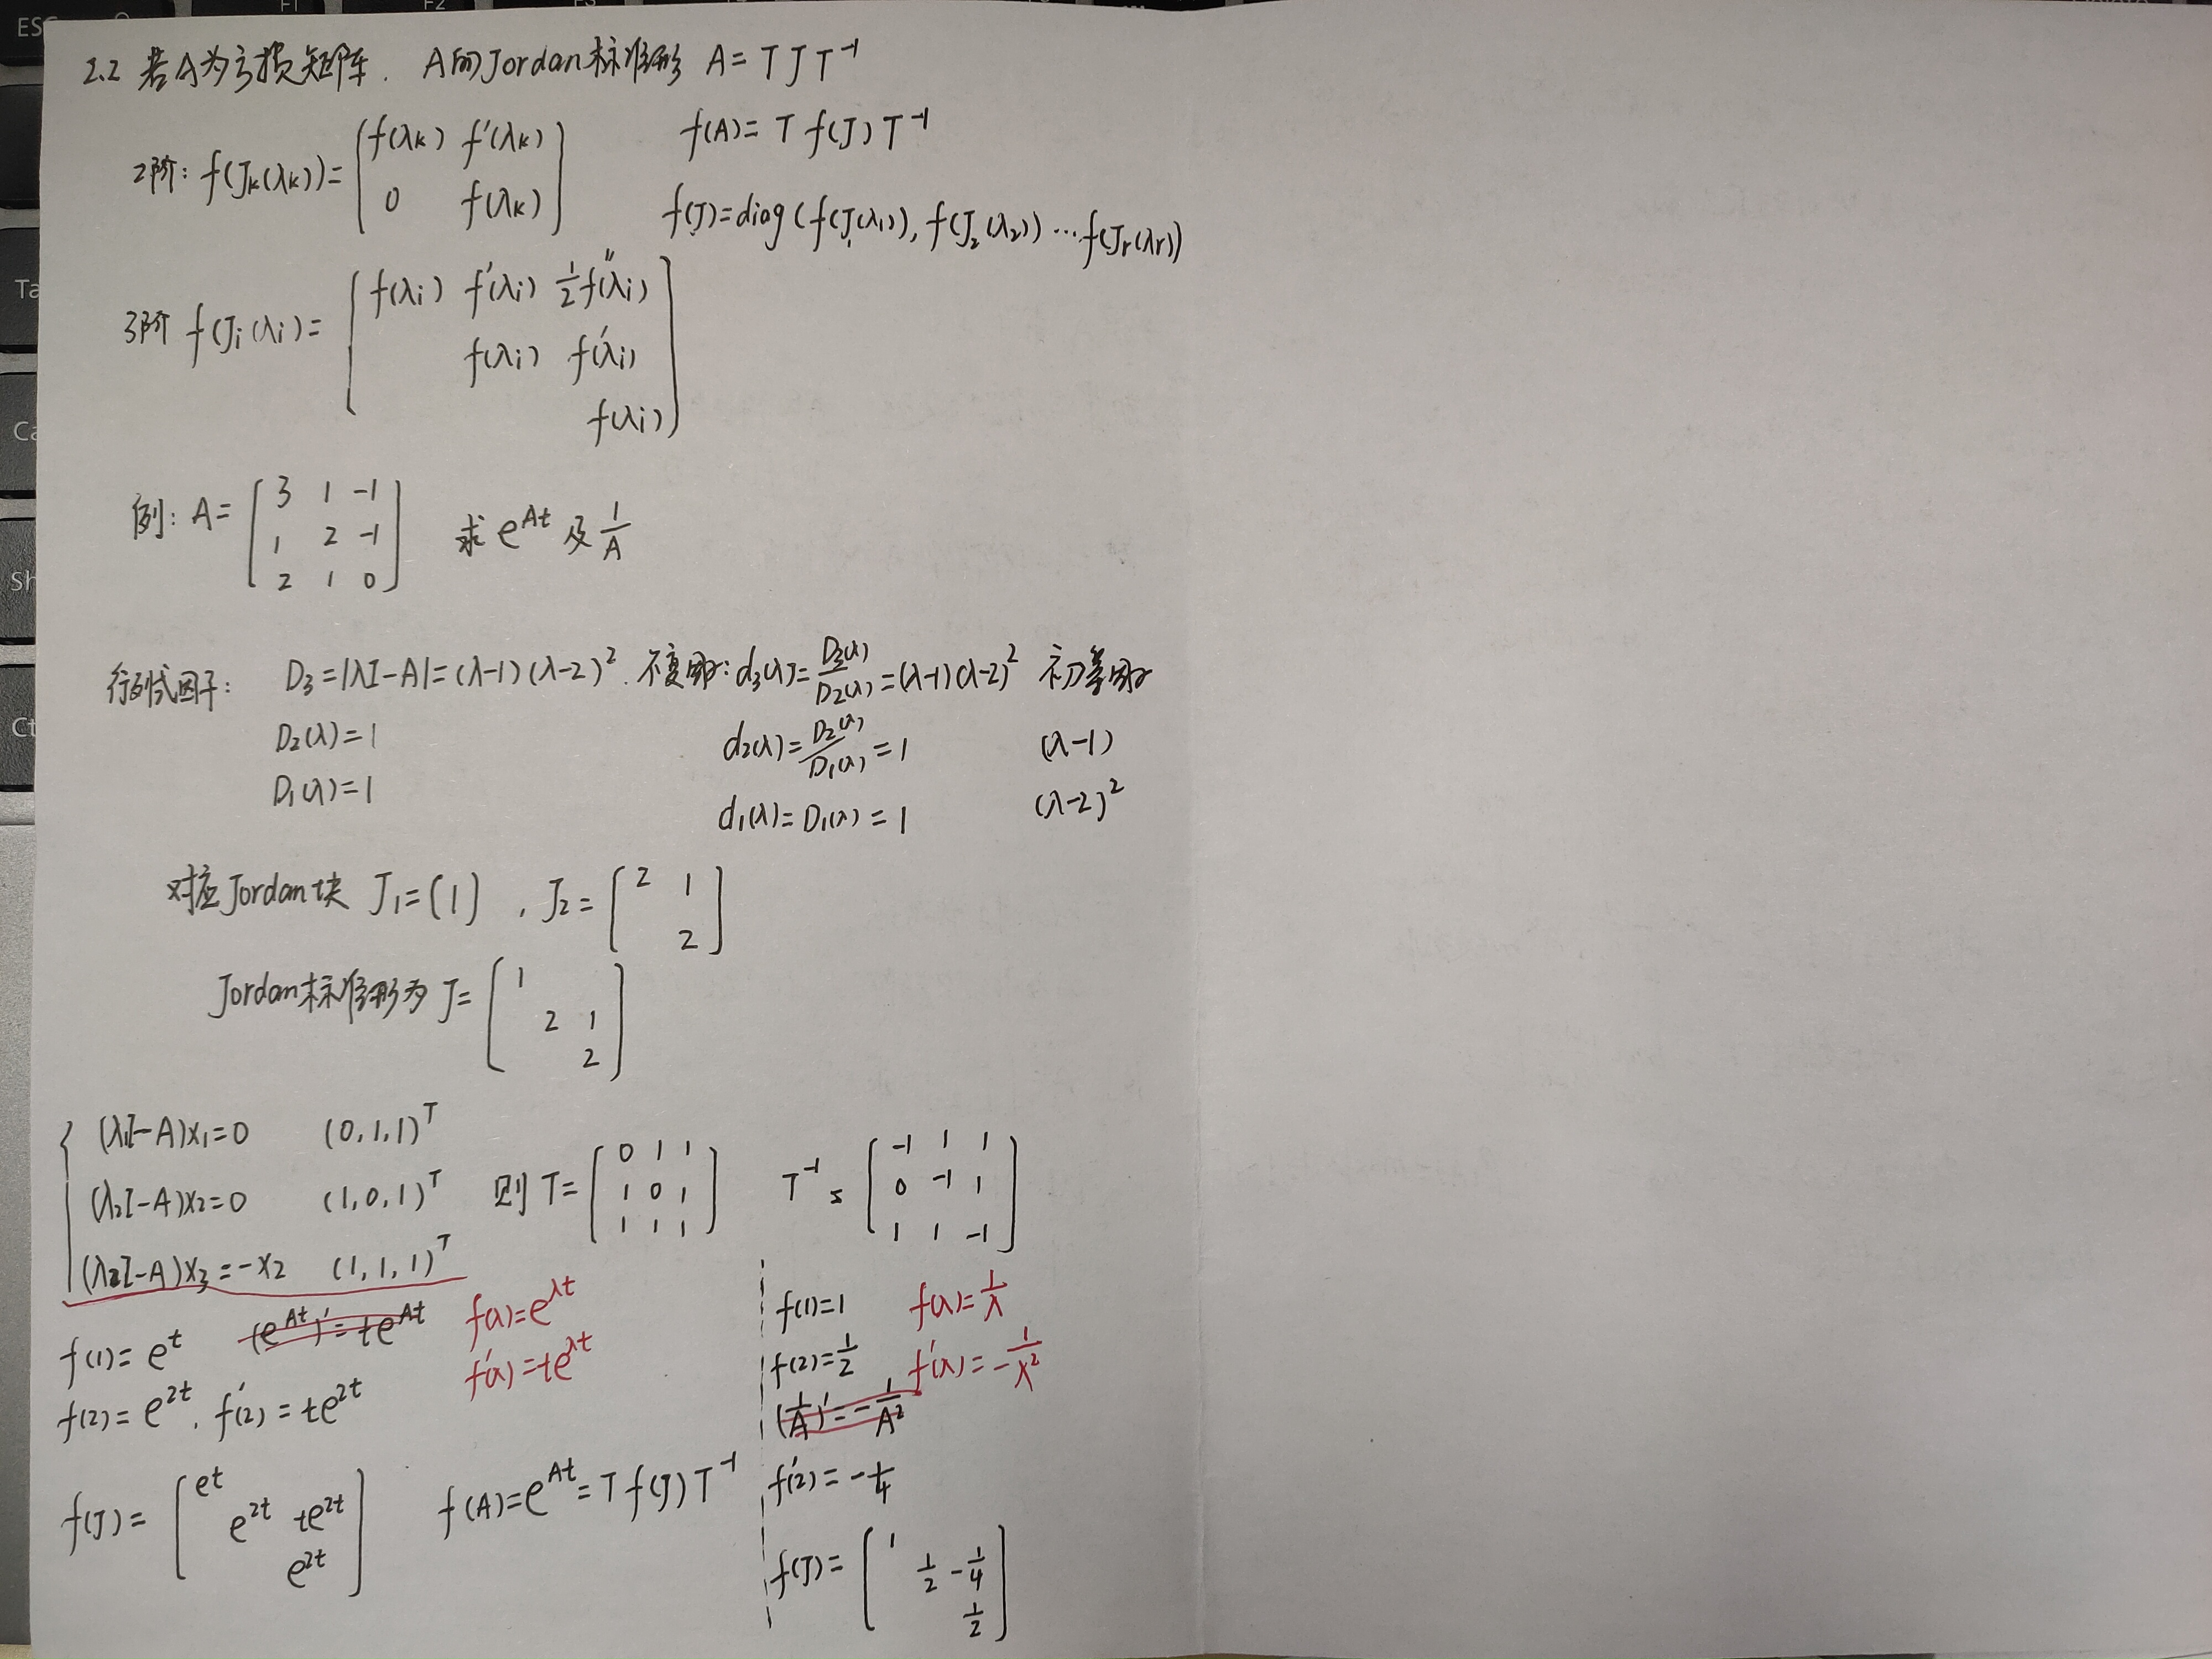 2.2 若A为亏损矩阵. A的Jordan标准形 A = T J T⁻¹
2阶: f(Jₖ(λₖ)) = [f(λₖ) f′(λₖ)
0 f(λₖ)]
f(A) = T f(J) T⁻¹
f(J) = diag(f(J₁(λ₁)), f(J₂(λ₂)) ⋯ f(Jᵣ(λr))
3阶 f(Jᵢ(λᵢ) = [f(λᵢ) f′(λᵢ) ½f″(λᵢ)
f(λᵢ) f′(λᵢ)
f(λᵢ)]
例: A = [3 1 -1
1 2 -1
2 1 0]
求 e^{At} 及 1/A
行列式因子: D₃ = |λI-A| = (λ-1)(λ-2)². 不变因子: d₃(λ) = D₃(λ)/D₂(λ) = (λ-1)(λ-2)² 初等因子
D₂(λ) = 1 d₂(λ) = D₂(λ)/D₁(λ) = 1 (λ-1)
D₁(λ) = 1 d₁(λ) = D₁(λ) = 1 (λ-2)²
对应Jordan块 J₁ = (1), J₂ = [2 1
2]
Jordan标准形为 J = [1
2 1
2]
(λ₁I-A)x₁ = 0 (0,1,1)ᵀ
(λ₂I-A)x₂ = 0 (1,0,1)ᵀ
(λ₂I-A)x₃ = -x₂ (1,1,1)ᵀ
则 T = [0 1 1
1 0 1
1 1 1]
T⁻¹ = [-1 1 1
0 -1 1
1 1 -1]
f(1) = e^t (e^{At})′ = te^{At} f(λ) = e^{λt}
f′(λ) = te^{λt}
f(2) = e^{2t}, f′(2) = te^{2t}
f(J) = [e^t
e^{2t} te^{2t}
e^{2t}]
f(A) = e^{At} = T f(J) T⁻¹
f(1) = 1 f(λ) = 1/λ
f(2) = 1/2 f′(λ) = -1/λ²
(1/A)′ = -1/A²
f′(2) = -1/4
f(J) = [1
1/2 -1/4
1/2]